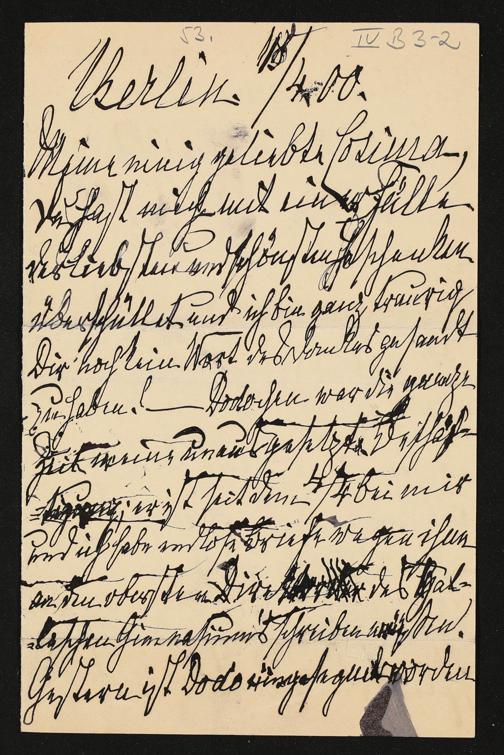 53. IV B 3-2
Berlin. 18/4.00.
Meine innig geliebte Cosima,
Du hast mich mit einer Fülle
der liebsten und schönsten Geschenken
überschüttet und ich bin ganz traurig
Dir noch kein Wort des Dankes gesandt
zu haben! — Dodochen war die ganze
Zeit meine unausgesetzte Beschäf-
=tigung; er ist seit dem 4/4 bei mir
und ich habe endlose Briefe wegen ihm
an den obersten des Hal-
=leschen Gimnasium's schreiben müssen.
Gestern ist Dodo eingesegnet worden